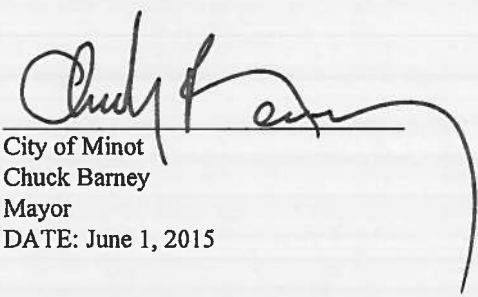 Chuck Barney
City of Minot
Chuck Barney
Mayor
DATE: June 1, 2015